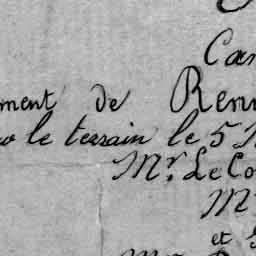 Cam
ment de Renn
le terrain le 5
Mr. Le Co
M
et